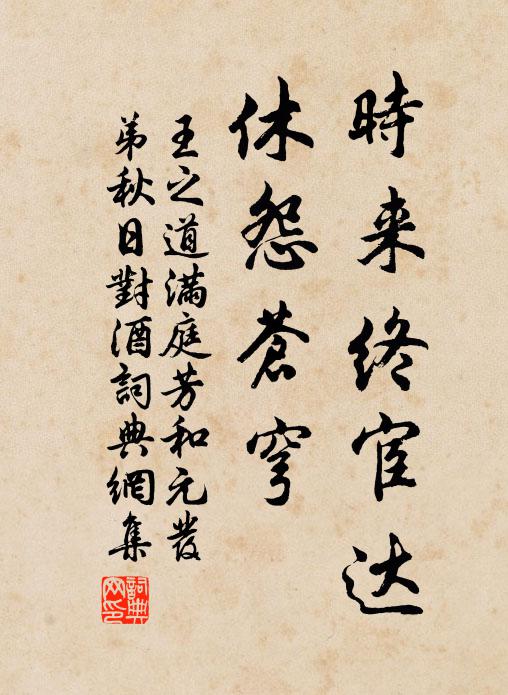 時来终宦达
休怨蒼穹
王之道滿庭芳和元發
弟秋日對酒詞典網集
詞典
网印